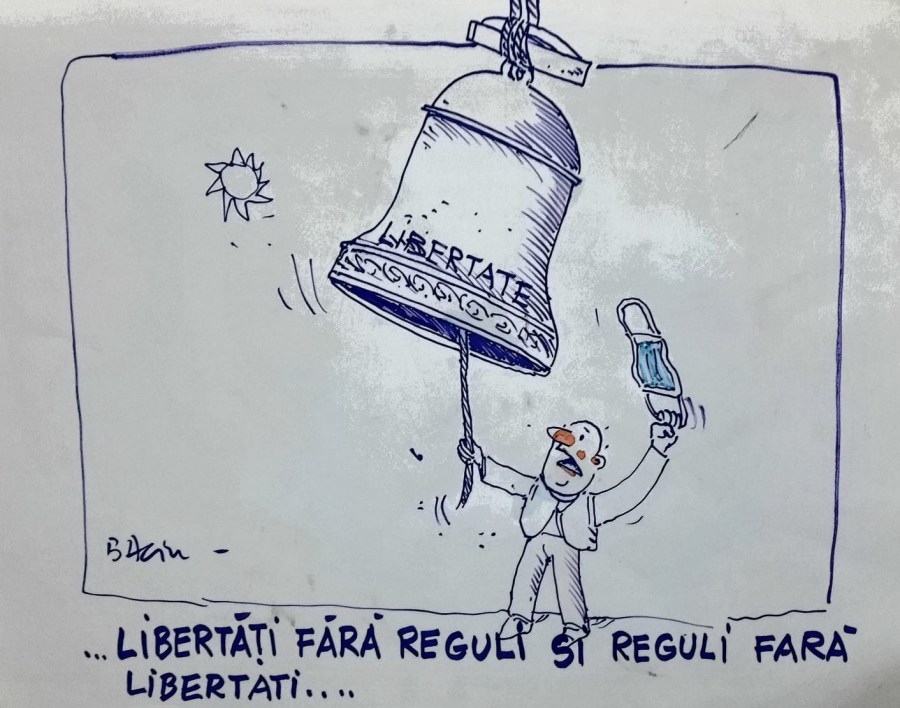 LIBERTATE
BAciu -
...LIBERTĂȚI FĂRĂ REGULI ȘI REGULI FARĂ
LIBERTATI....